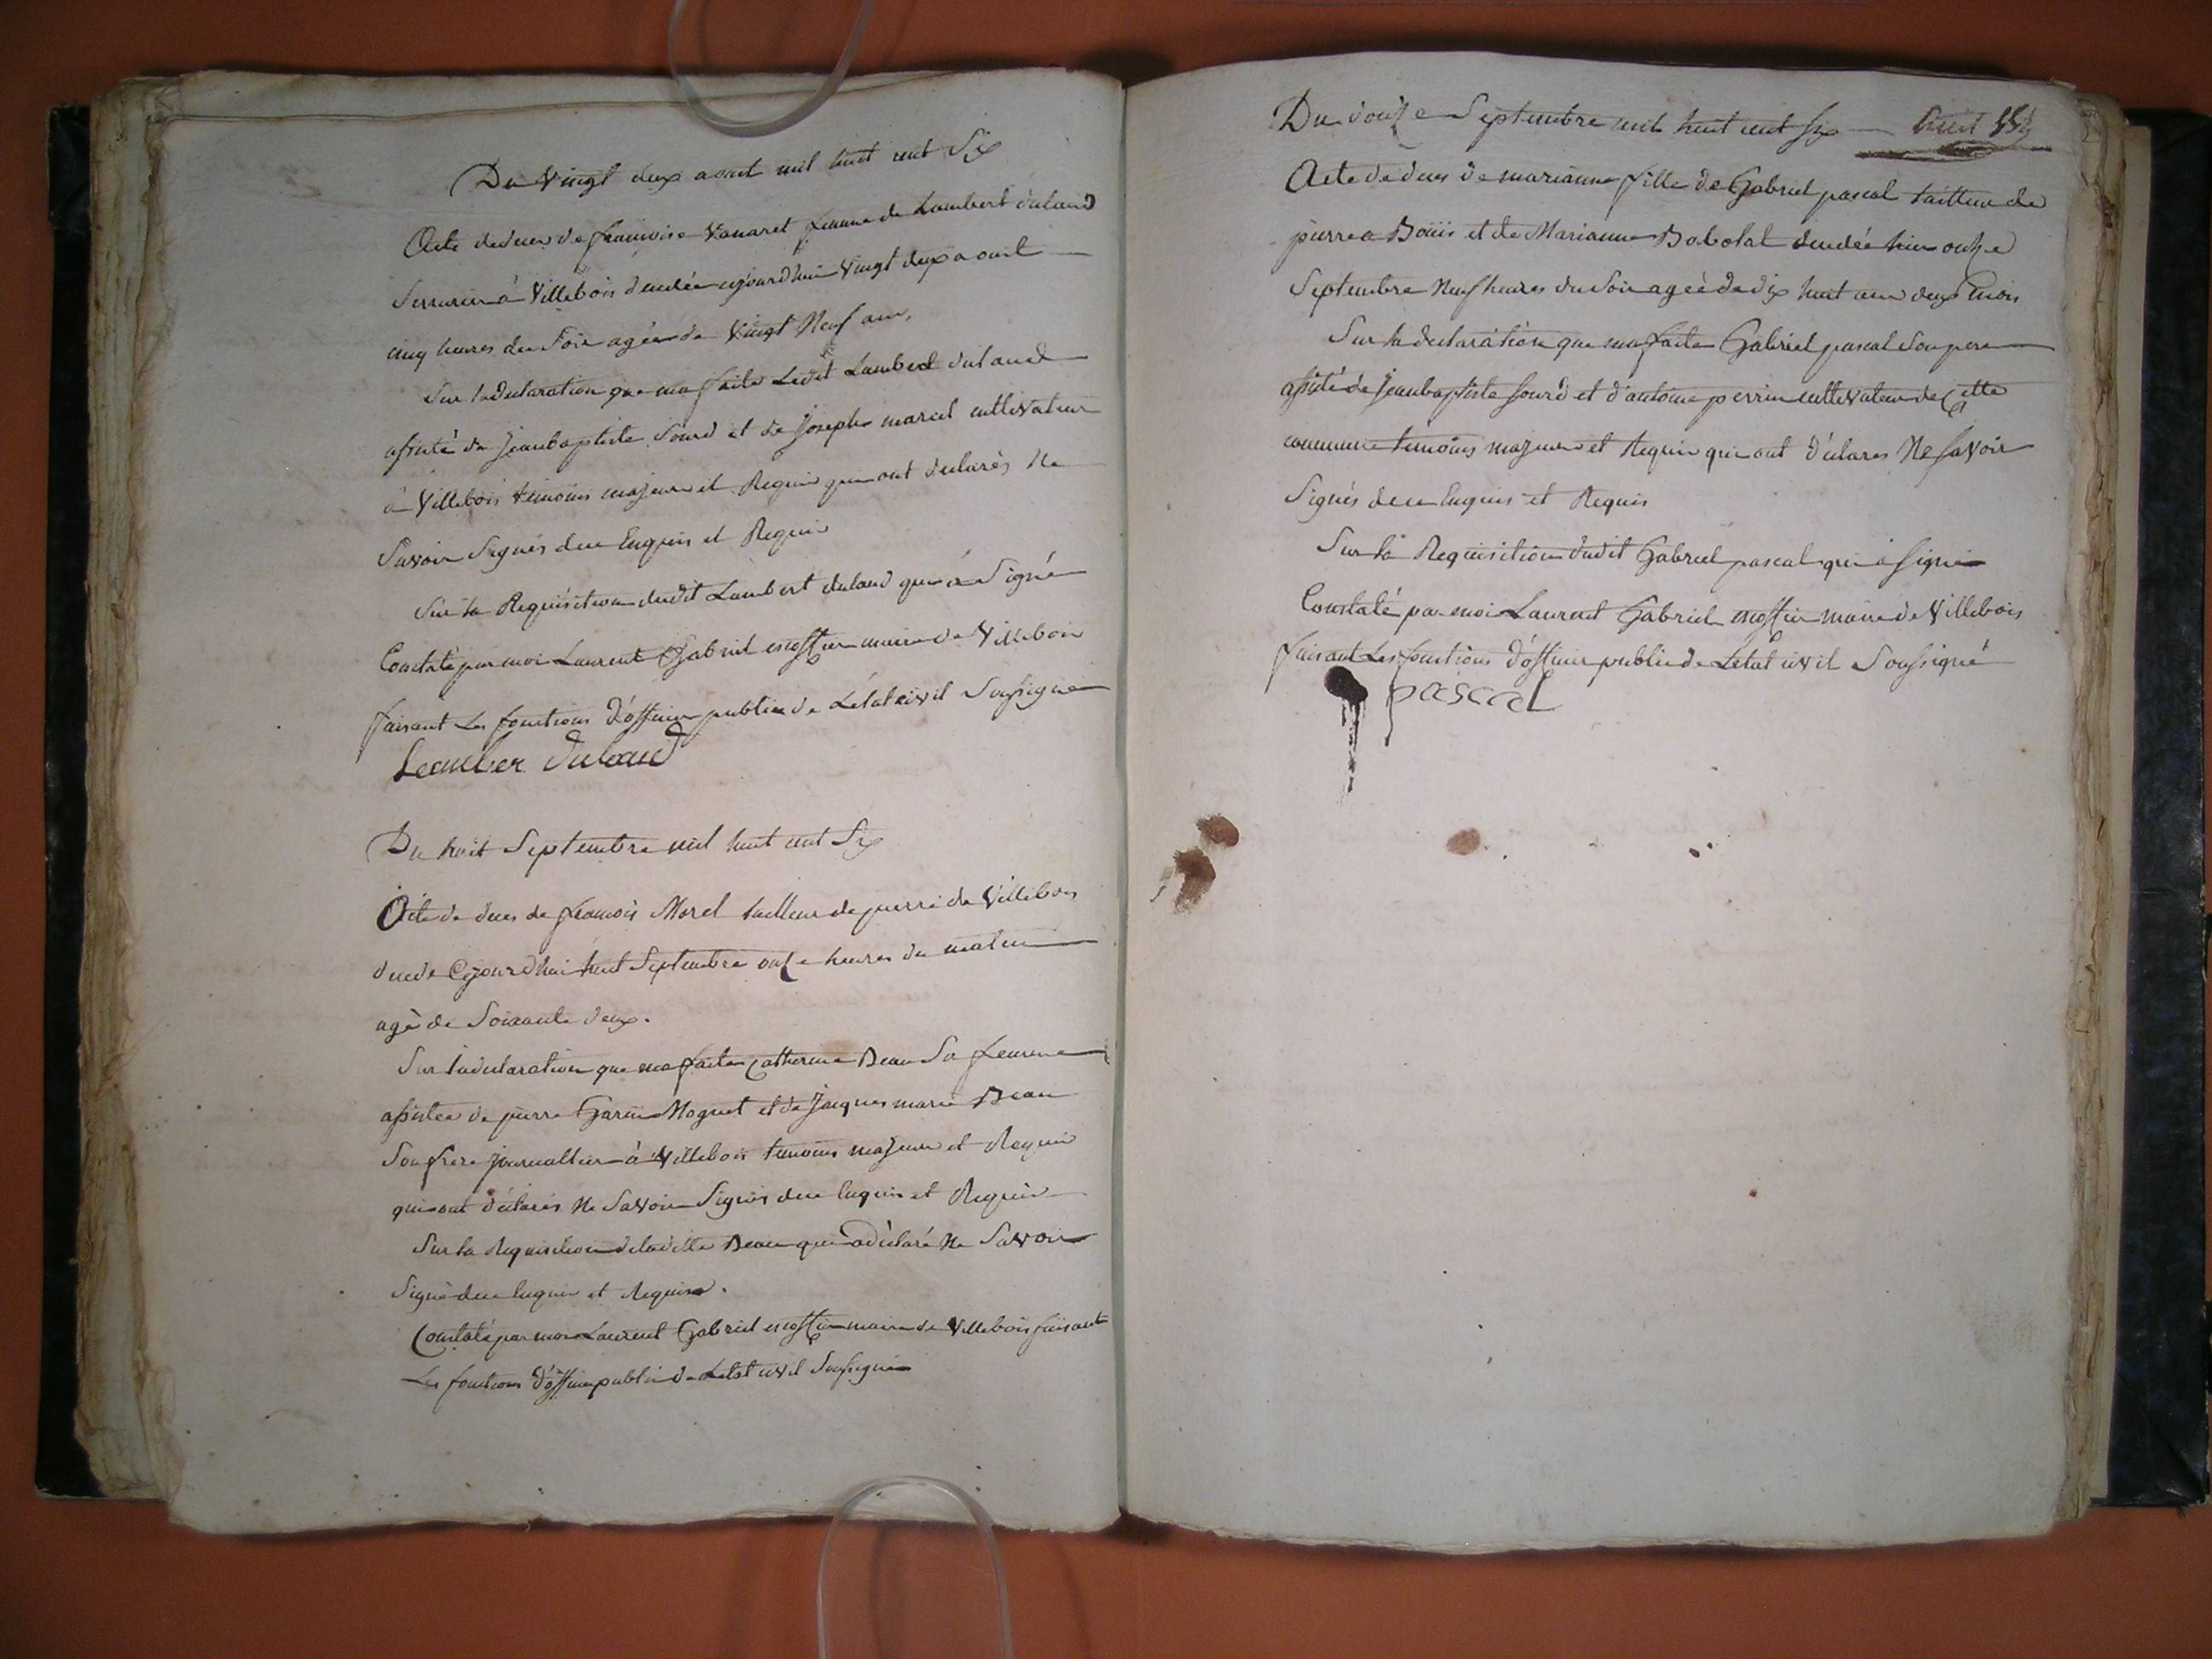 Du vingt deux aout mil huit cent Six
Acte de deces de francoise Vanaret femme de Lambert dulaud
Serrurier à Villebois decedée cejourdhui Vingt deux aout
cinq heures du Soir agée de Vingt Neuf ans.
Sur la declaration que ma faite Ledit Lambert dulaud
assisté de Jeanbaptiste Sourd et de Joseph marcel cultivateur
à Villebois temoins majeurs et Requis qui ont declarés Ne
Savoir Signés de ce Enquis et Requis
Sur la Requisition dudit Lambert dulaud qui à Signé
Constaté par moi Laurent Gabriel maire de Villebois
faisant Les fonctions d'officier public de L'état civil Soussigné
Lamber dulaud
Du huit Septembre mil huit cent Six
Acte de deces de francois Morel tailleur de pierre de Villebois
decedé Cejourdhui huit Septembre onze heures du matin
agé de Soixante deux.
Sur la declaration que ma faite Catherine Beau Sa femme
assistée de pierre Garin Moguet et de Jacques marie Beau
Son frere journallier à Villebois temoins majeurs et Requis
qui ont déclarés Ne Savoir Signés de ce Enquis et Requis
Sur la Requisition deladitte Beau qui a déclaré Ne Savoir
Signé de ce Enquise et Requise.
Constaté par moi Laurent Gabriel maire de Villebois faisant
Les fonctions d'officier public de Letat civil Soussigné
Du douze Septembre mil huit cent six
Acte de deces de marianne fille de Gabriel pascal tailleur de
pierre a Bouis et de Marianne Babolat decedée hier onze
Septembre Neuf heures du Soir agée de dix huit ans deux mois
Sur la declaration que ma faite Gabriel pascal Son pere
assisté de Jeanbaptiste Sourd et d'antoine perrin cultivateur de Cette
commune temoins majeurs et Requis qui ont déclarés Ne Savoir
Signés de ce Enquis et Requis
Sur la Requisition dudit Gabriel pascal qui à signé
Constaté par moi Laurent Gabriel maire de Villebois
faisant Les fonctions d'officier public de L'etat civil Soussigné
pascal